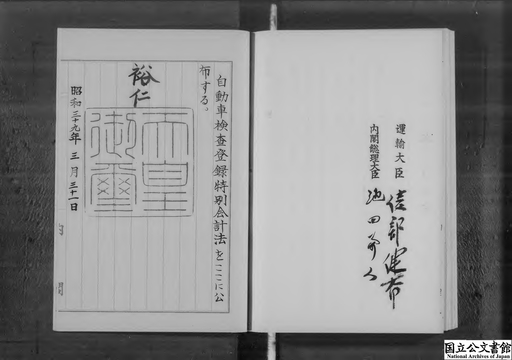 運輸大臣 綾部健太郎
内閣総理大臣 池田勇人
自動車検査登録特別会計法をここに公
布する。
裕仁
天皇
御璽
昭和三十九年三月三十一日
国立公文書館
National Archives of Japan